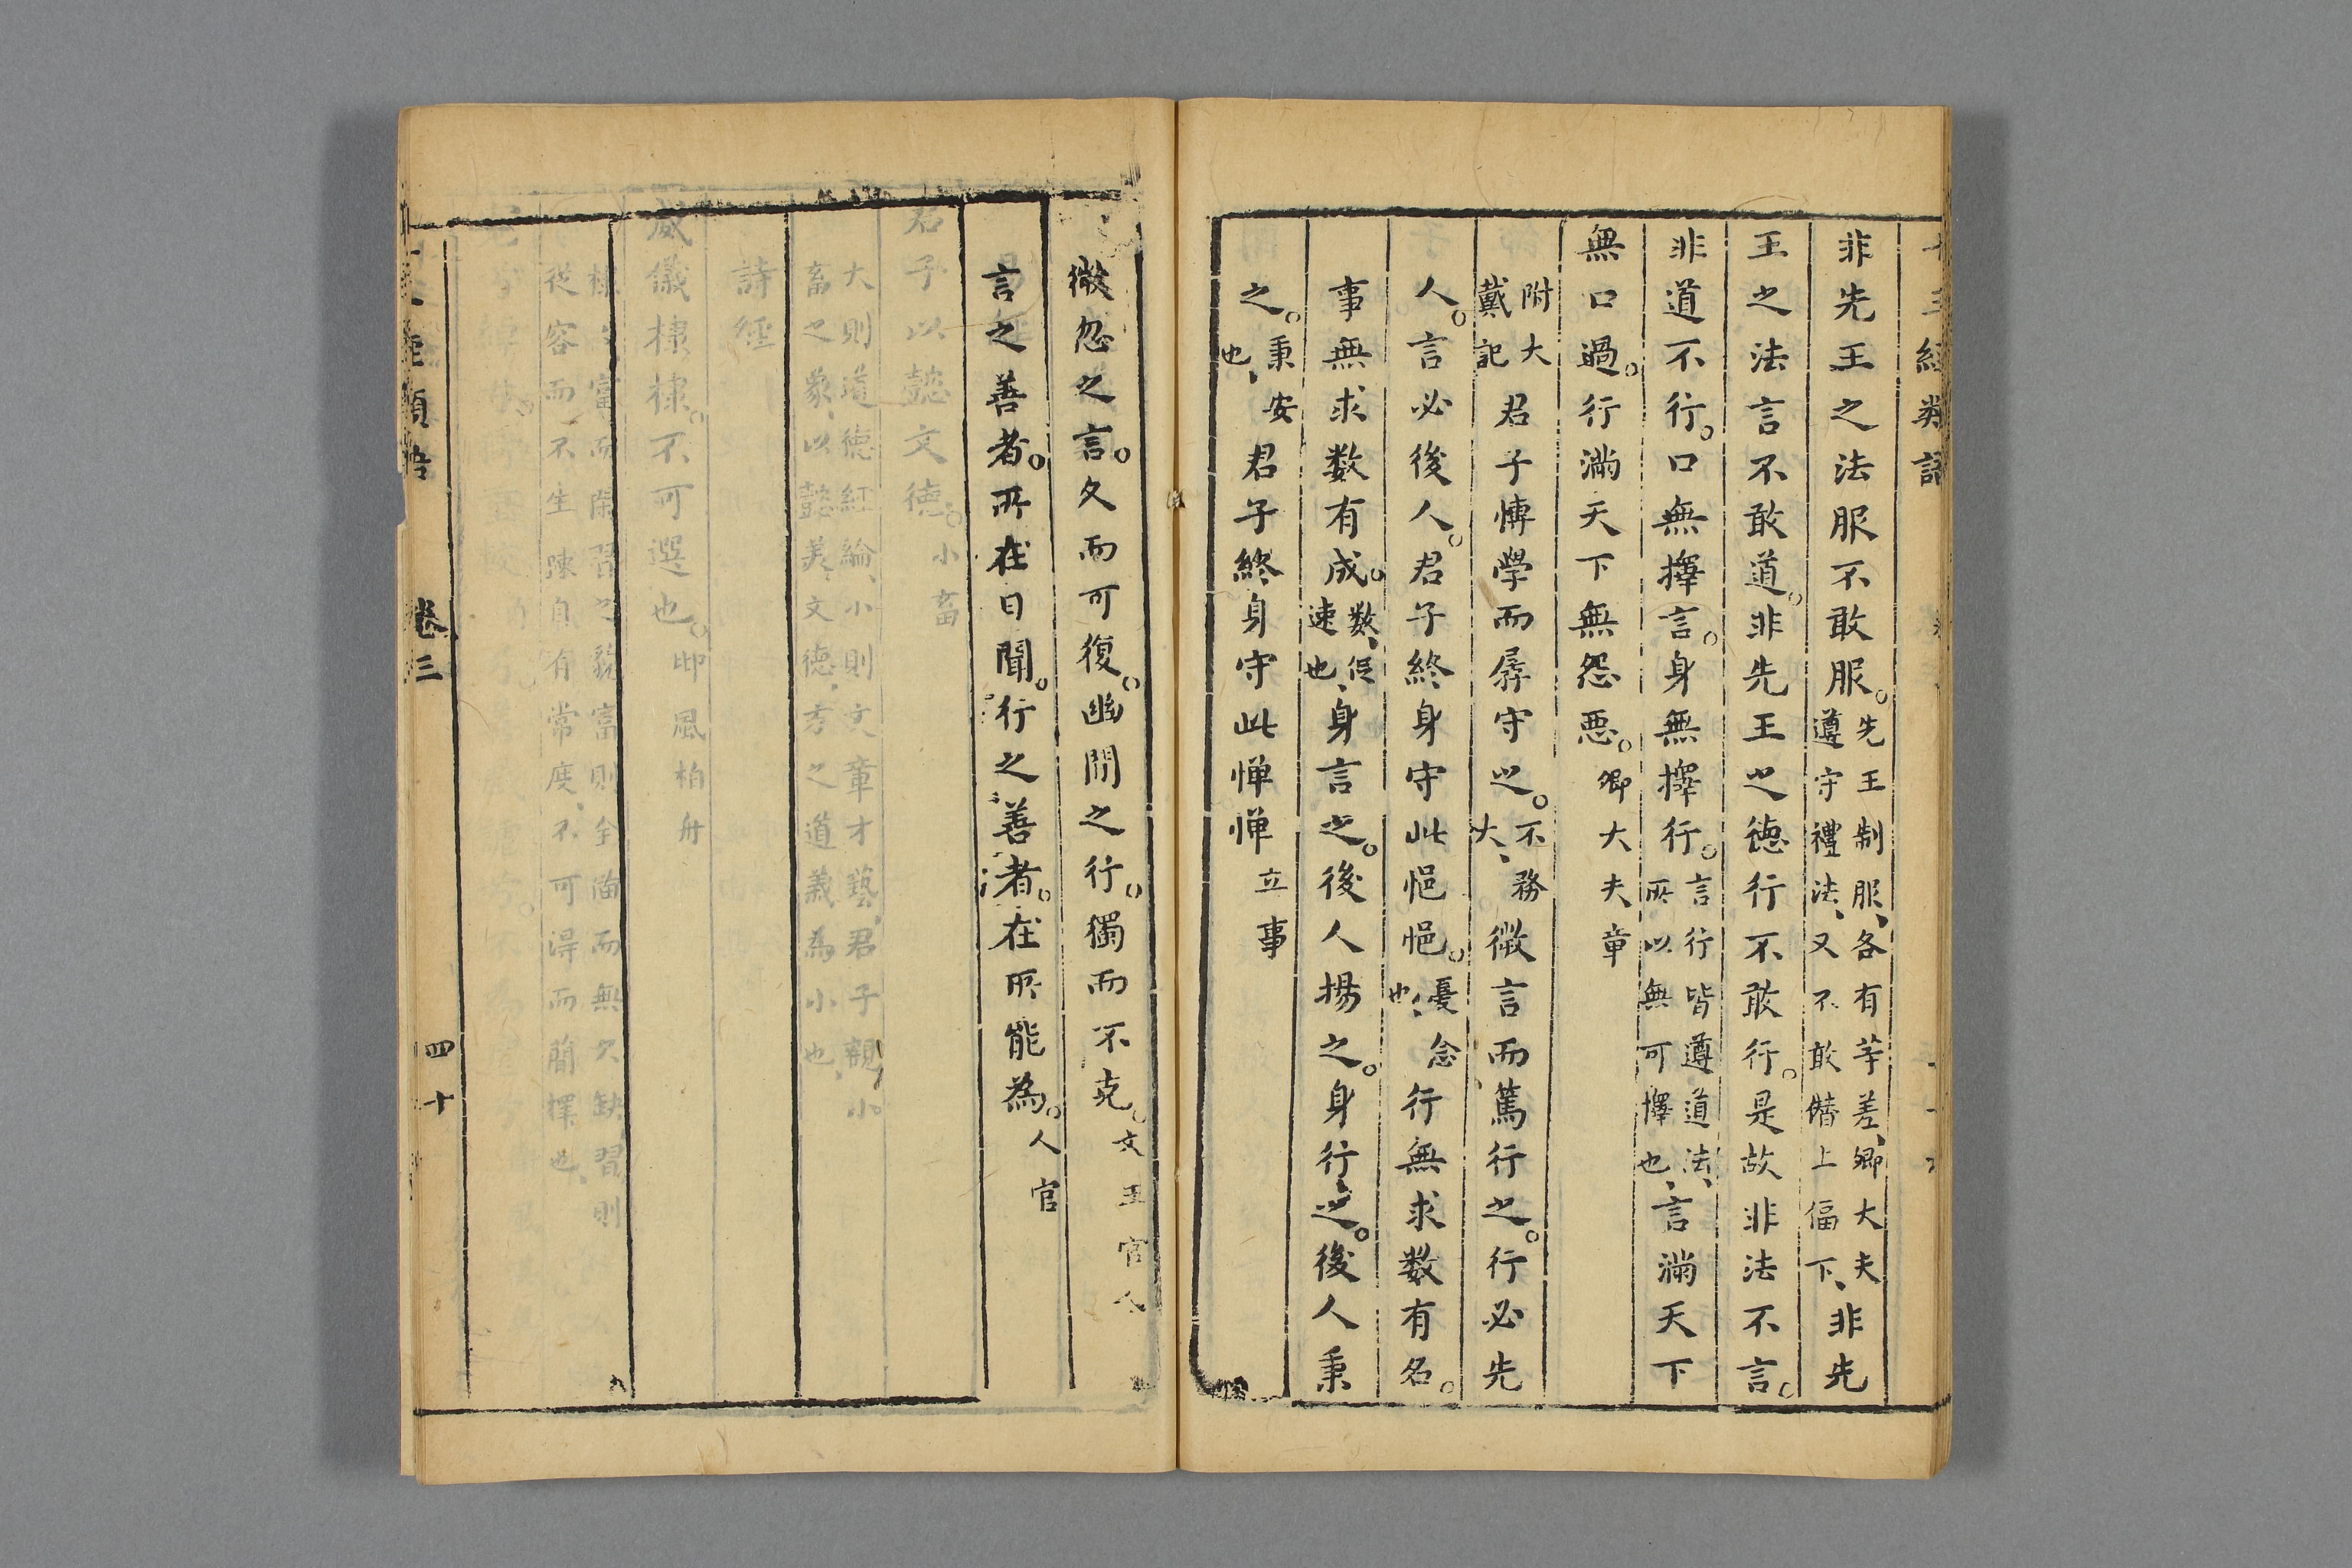 十三經類語
非先王之法服不敢服。先王制服、各有等差、卿大夫遵守禮法、又不敢僭上偪下、非先
王之法言不敢道。非先王之德行不敢行。是故非法不言。
非道不行。口無擇言。身無擇行。言行皆遵道法、所以無可擇也、言滿天下
無口過。行滿天下無怨惡。卿大夫章
附大戴記 君子博學而孱守之。不務大、微言而篤行之。行必先
人。言必後人。君子終身守此悒悒。憂念也、行無求數有名。
事無求數有成。數、促速也、身言之。後人揚之。身行之。後人秉
之。秉安也、君子終身守此憚憚 立事
微忽之言。久而可復。幽閒之行。獨而不克。文王官人
言之善者。所在日聞。行之善者。在所能為。人官
君子以懿文德。小畜
大則道德經綸、小則文章才藝、君子觀小
畜之象、以懿美文德、方之道義為小也、
詩經
威儀棣棣。不可選也。邶風柏舟
棣富而閑習之貌富則全備而無欠缺習則
從容而不生疎自有常度、不可得而簡擇也、
卷三 四十